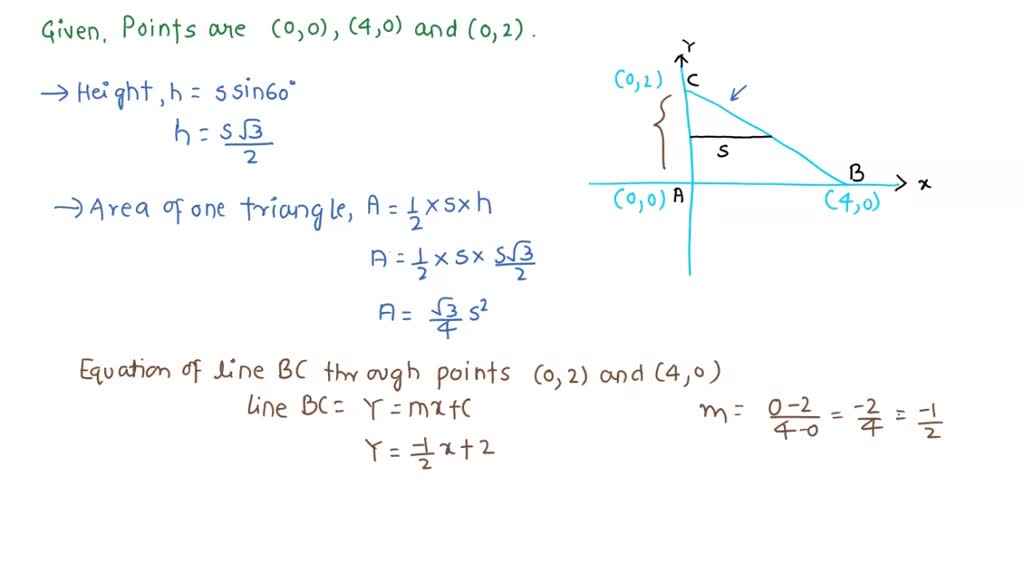 Given, Points are (0,0), (4,0) and (0,2).
→ Height, h = s sin60°
h = s√3/2
→ Area of one triangle, A = 1/2 × s × h
A = 1/2 × s × s√3/2
A = √3/4 s²
Equation of line BC through points (0,2) and (4,0)
line BC = Y = mx+c
Y = -1/2 x + 2
m = 0-2/4-0 = -2/4 = -1/2
Y
(0,2) C
s
B
x
(0,0) A
(4,0)